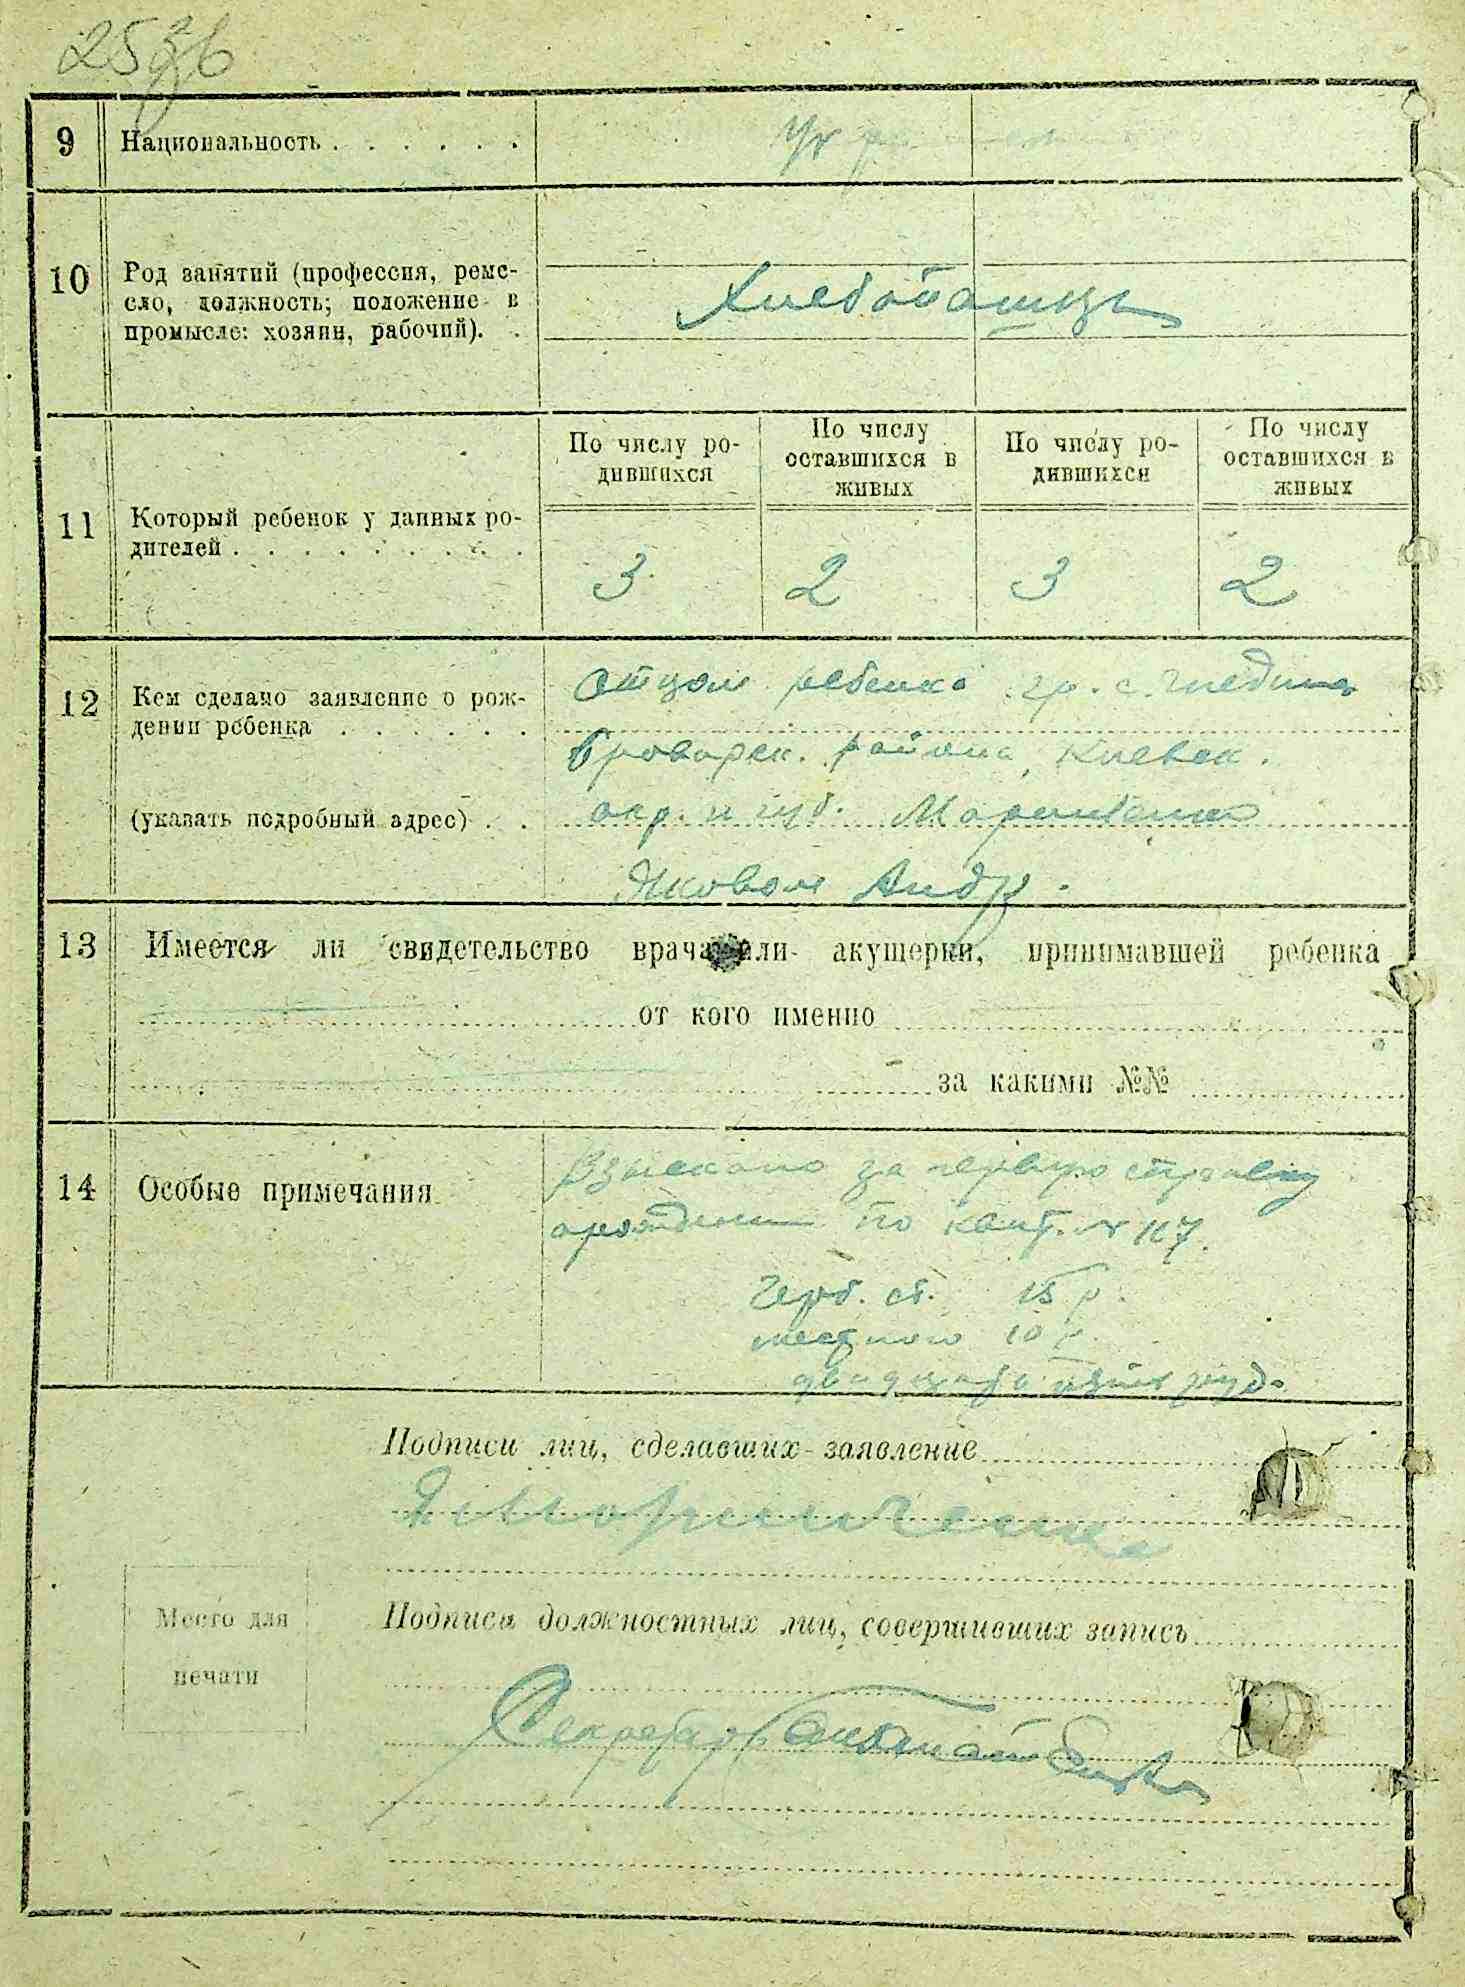 9 Национальность . . . . . .
10 Род занятий (профессия, реме-
сло, должность; положение в
промысле: хозяин, рабочий). .
Хлебопашец
По числу ро-
дившихся
По числу
оставшихся в
живых
По числу ро-
дившихся
По числу
оставшихся в
живых
11 Который ребенок у данных ро-
дителей . . . . . . . . .
3 2 3 2
12 Кем сделано заявление о рож-
дении ребенка . . . . . .
(указать подробный адрес) . .
отцом ребенка гр. с. Гнедина
Броварск. района, Киевск.
окр. и губ. Мариниченко
Яковом Андр.
13 Имеется ли свидетельство врача или акушерки, принимавшей ребенка
от кого именно
за какими №№
14 Особые примечания
Взыскано за первую справку
о рождении по квит. № 117.
Герб. сб. 15 р.
местного 10 р.
двадцать пять руб.
Подписи лиц, сделавших заявление
Место для
печати
Подписи должностных лиц, совершивших запись
Секретарь